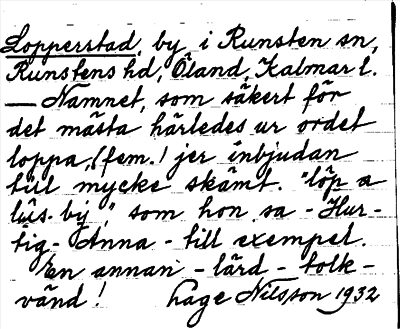 Lopperstad, by i Runsten sn,
Runstens hd, Öland, Kalmar l.
— Namnet, som säkert för
det mästa härledes ur ordet
loppa, (fem.) jer inbjudan
till mycke skämt. "löp a
lüs-bÿ," som hon sa - Hur-
tig - Anna - till exempel.
En annan - lärd - tolk-
vänd! Lage Nilsson 1932